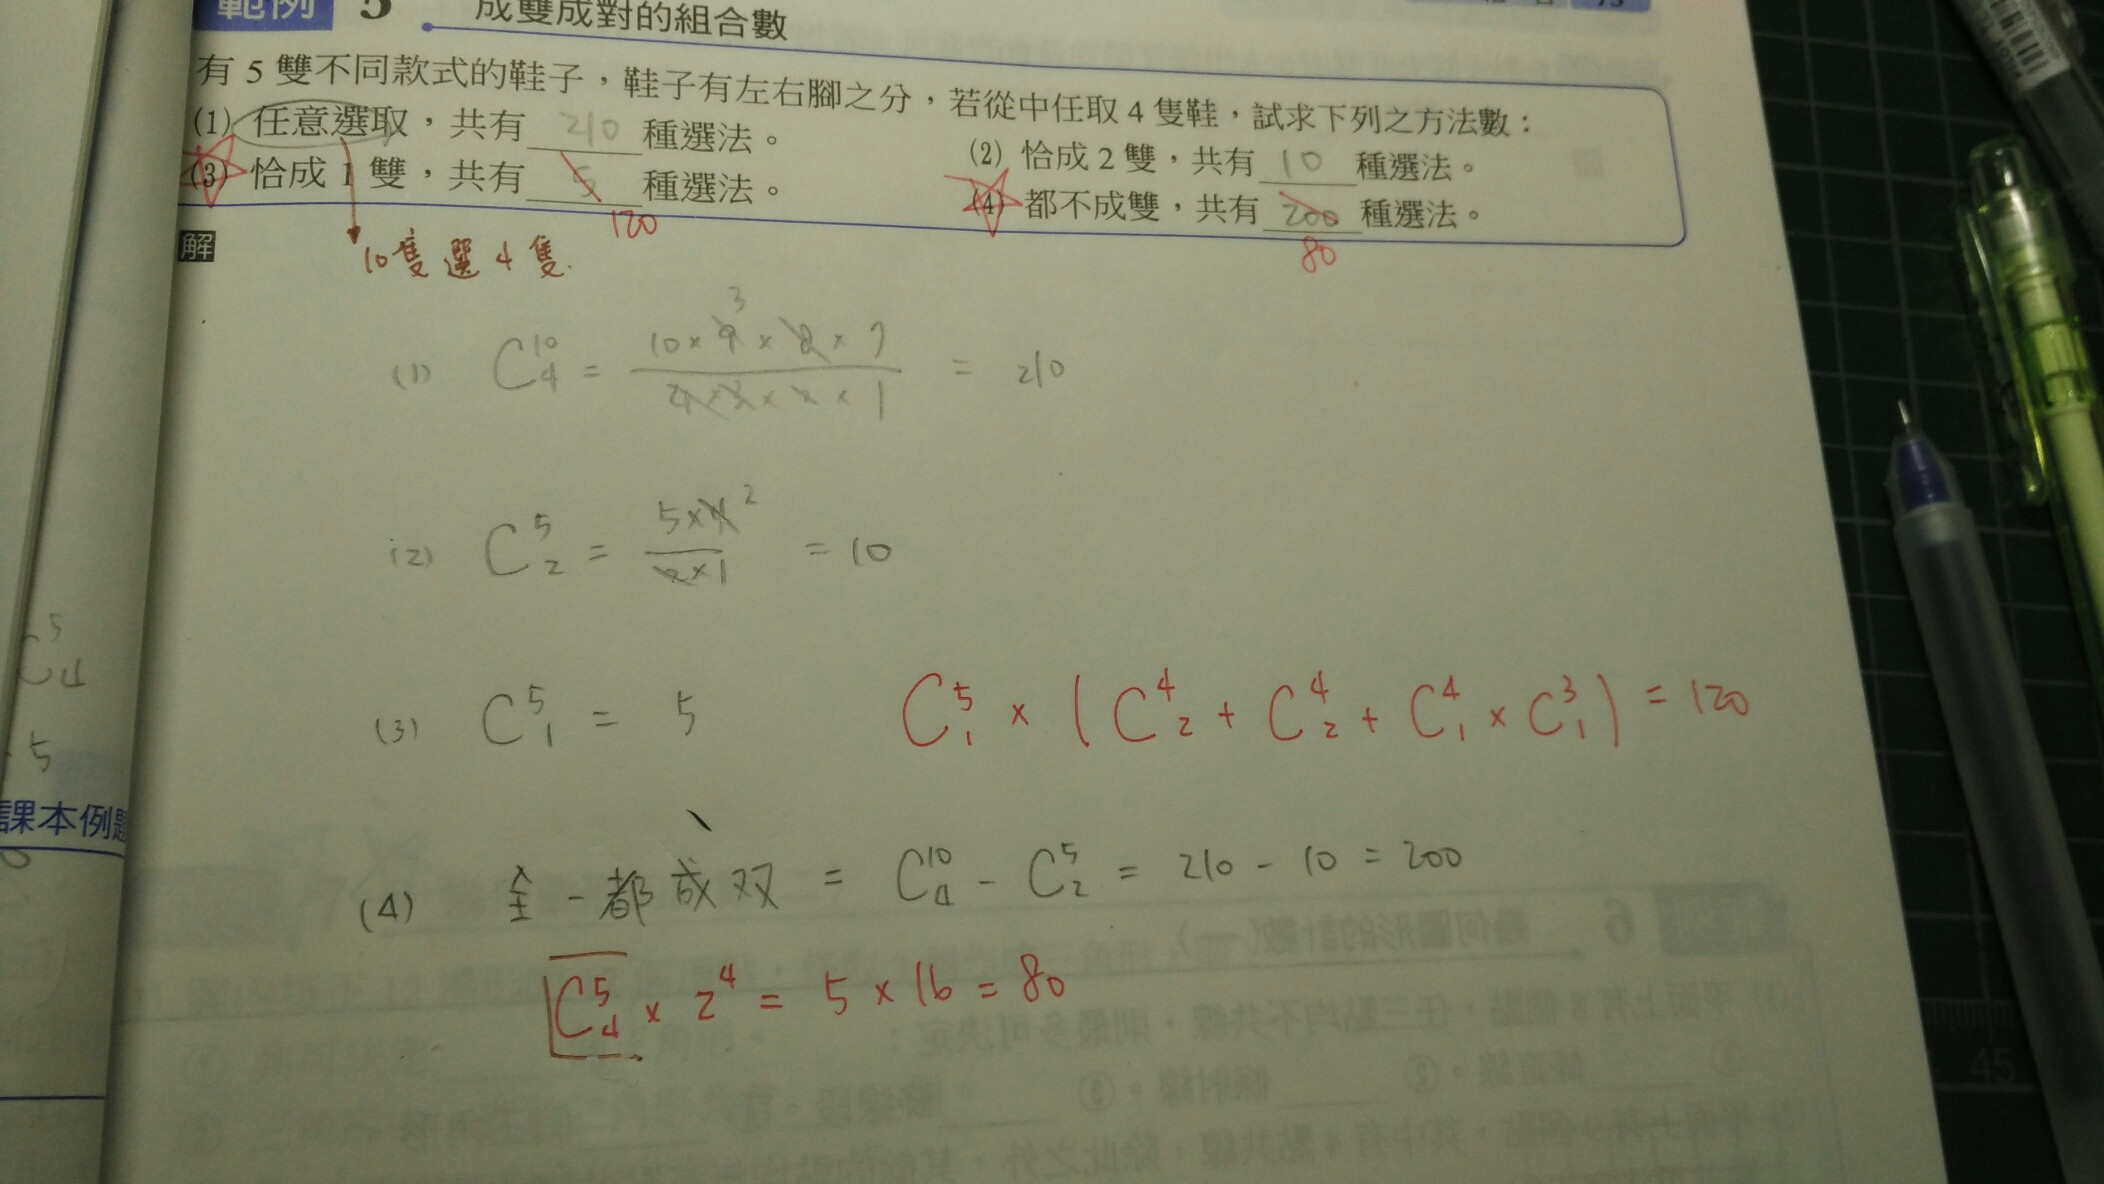 範例 5 成雙成對的組合數
有 5 雙不同款式的鞋子，鞋子有左右腳之分，若從中任取 4 隻鞋，試求下列之方法數：
(1) 任意選取，共有 210 種選法。
(2) 恰成 2 雙，共有 10 種選法。
(3) 恰成 1 雙，共有 5 種選法。
120
(4) 都不成雙，共有 200 種選法。
80
解
10隻選4隻.
(1) C^10_4 = 10×9×8×7 / 4×3×2×1 = 210
3
(2) C^5_2 = 5×4 / 2×1 = 10
2
(3) C^5_1 = 5
C^5_1 × (C^4_2 + C^4_2 + C^4_1 × C^3_1) = 120
(4) 全-都成双 = C^10_4 - C^5_2 = 210 - 10 = 200
C^5_4 × 2^4 = 5 × 16 = 80
C^5_4
5
課本例題
45